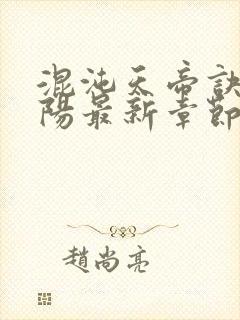 混沌天帝訣
陽最新章節
趙尚亮